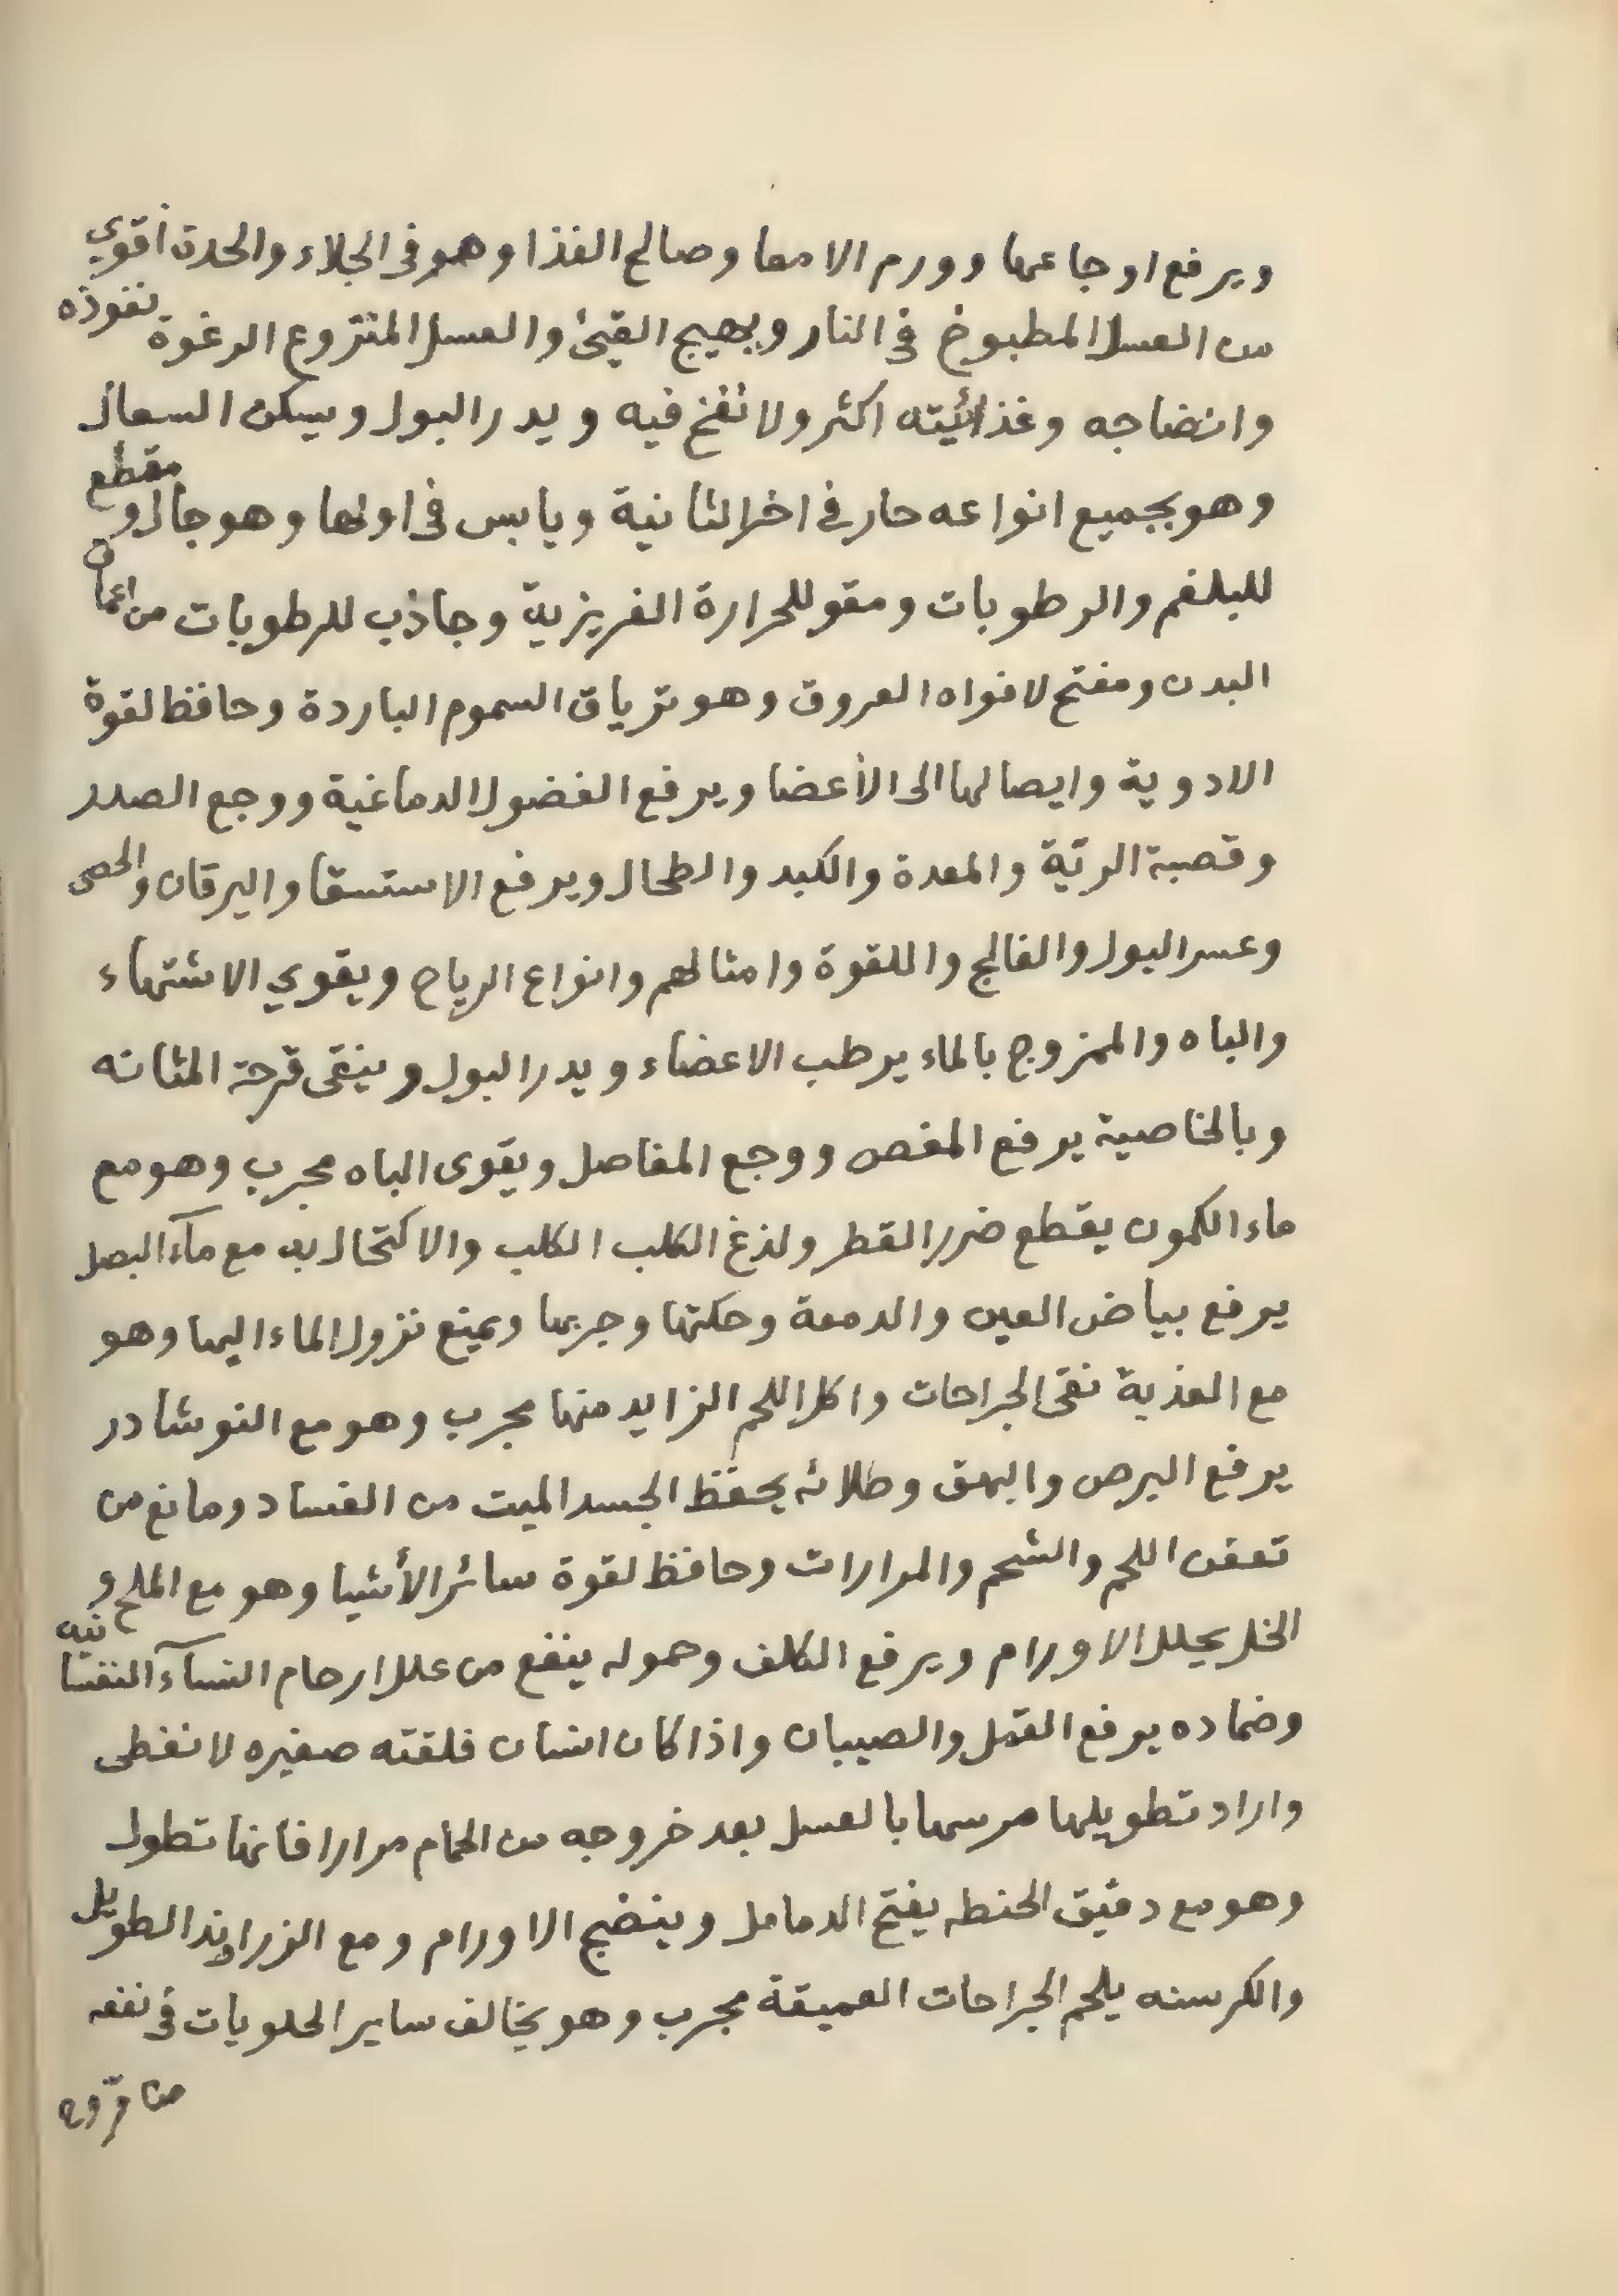 ويرفع اوجاعها وورم الامعا وصالح الغذا وهو فى الجلاء والحدة أقوي
من العسل المطبوخ فى النار ويهيج القيئ والعسل المنزوع الرغوة نفوذه
وانضاجه وغذائيته اكثر ولا نفخ فيه ويدر البول ويسكن السعال
وهو بجميع انواعه حار في اخر الثانية ويابس فى اولها وهو جال ومقطع
للبلغم والرطوبات ومقو للحرارة الغريزية وجاذب للرطوبات من اعماق
البدن ومفتح لافواه العروق وهو ترياق السموم الباردة وحافظ لقوة
الادوية وايصالها الى الأعضا ويرفع الفضول الدماغية ووجع الصدر
وقصبة الرئة والمعدة والكبد والطحال ويرفع الاستسقا واليرقان والحصى
وعسر البول والفالج واللقوة وامثالهم وانواع الرياح ويقوي الاشتهاء
والباه والممزوج بالماء يرطب الاعضاء ويدر البول وينقى قرحة المثانه
وبالخاصية يرفع المغص ووجع المفاصل ويقوى الباه مجرب وهو مع
ماء الكمون يقطع ضرر القطر ولدغ الكلب الكلب والاكتحال به مع مآء البصل
يرفع بياض العين والدمعة وحكتها وجربها ويمنع نزول الماء اليها وهو
مع العذبة نقى الجراحات واكل اللحم الزايد منها مجرب وهو مع النوشادر
يرفع البرص والبهق وطلائه يحفظ الجسد الميت من الفساد ومانع من
تعفن اللحم والشحم والمرارات وحافظ لقوة سائر الأشيا وهو مع الملح و
الخل يحلل الاورام ويرفع الكلف وحموله ينفع من علل ارحام النسآء النفسانيه
وضماده يرفع القمل والصيبان واذا كان انسان قلفته صغيره لا تغطى
واراد تطويلها مرسها بالعسل بعد خروجه من الحمام مرارا فانها تطول
وهو مع دقيق الحنطه يفتح الدمامل وينضج الاورام ومع الزراوند الطويل
والكرسنه يلحم الجراحات العميقة مجرب وهو يخالف ساير الحلويات فى نفعه
من